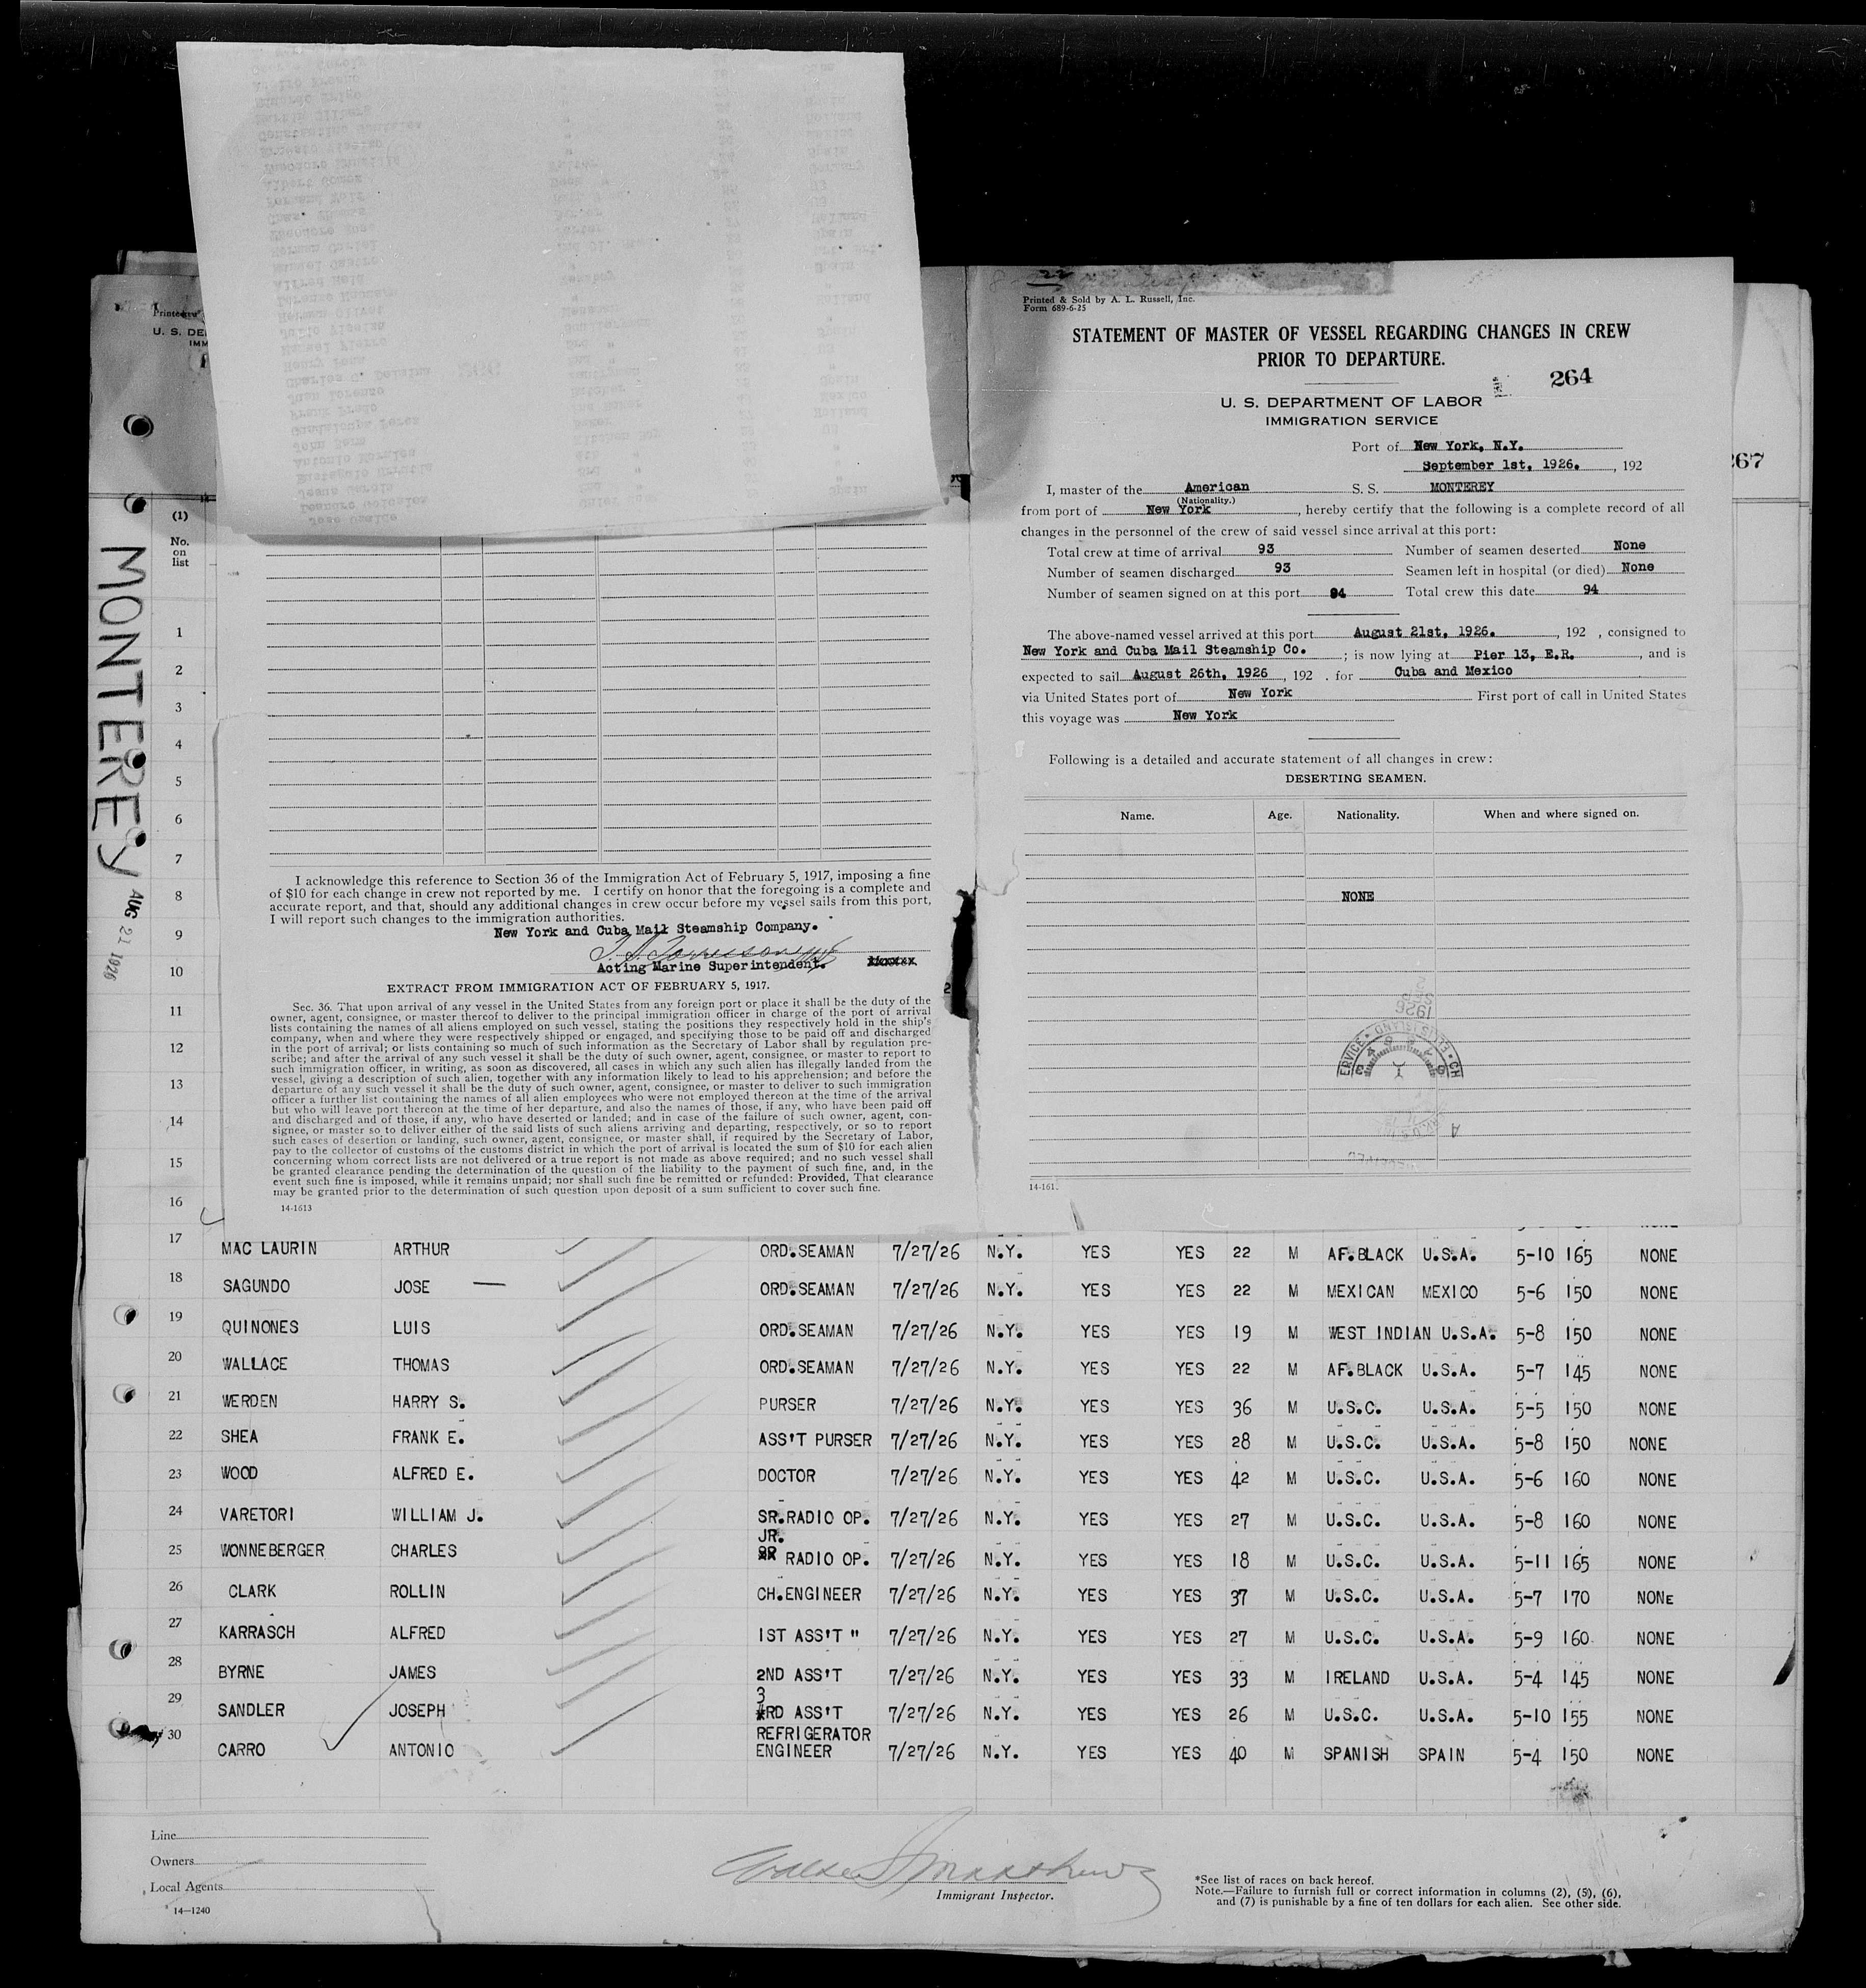 Printed & Sold by A. L. Russell, Inc.
Form 689-6-25
STATEMENT OF MASTER OF VESSEL REGARDING CHANGES IN CREW
PRIOR TO DEPARTURE.
264
U. S. DEPARTMENT OF LABOR
IMMIGRATION SERVICE
Port of New York, N.Y.
September 1st, 1926. , 192
I, master of the American S. S. MONTEREY
(Nationality.)
from port of New York , hereby certify that the following is a complete record of all
changes in the personnel of the crew of said vessel since arrival at this port:
Total crew at time of arrival 93 Number of seamen deserted None
Number of seamen discharged 93 Seamen left in hospital (or died) None
Number of seamen signed on at this port 94 Total crew this date 94
The above-named vessel arrived at this port August 21st, 1926. , 192 , consigned to
New York and Cuba Mail Steamship Co. ; is now lying at Pier 13, E.R. , and is
expected to sail August 26th, 1926 , 192 . for Cuba and Mexico
via United States port of New York First port of call in United States
this voyage was New York
Following is a detailed and accurate statement of all changes in crew:
DESERTING SEAMEN.
Name. Age. Nationality. When and where signed on.
NONE
14-161
267
U. S. DE
IMM
(1)
No.
on
list
MONTEREY
AUG 21 1926
1
2
3
4
5
6
7
8
9
10
11
12
13
14
15
16
I acknowledge this reference to Section 36 of the Immigration Act of February 5, 1917, imposing a fine
of $10 for each change in crew not reported by me. I certify on honor that the foregoing is a complete and
accurate report, and that, should any additional changes in crew occur before my vessel sails from this port,
I will report such changes to the immigration authorities.
New York and Cuba Mail Steamship Company.
Acting Marine Superintendent.
EXTRACT FROM IMMIGRATION ACT OF FEBRUARY 5, 1917.
Sec. 36. That upon arrival of any vessel in the United States from any foreign port or place it shall be the duty of the
owner, agent, consignee, or master thereof to deliver to the principal immigration officer in charge of the port of arrival
lists containing the names of all aliens employed on such vessel, stating the positions they respectively hold in the ship's
company, when and where they were respectively shipped or engaged, and specifying those to be paid off and discharged
in the port of arrival; or lists containing so much of such information as the Secretary of Labor shall by regulation pre-
scribe; and after the arrival of any such vessel it shall be the duty of such owner, agent, consignee, or master to report to
such immigration officer, in writing, as soon as discovered, all cases in which any such alien has illegally landed from the
vessel, giving a description of such alien, together with any information likely to lead to his apprehension; and before the
departure of any such vessel it shall be the duty of such owner, agent, consignee, or master to deliver to such immigration
officer a further list containing the names of all alien employees who were not employed thereon at the time of the arrival
but who will leave port thereon at the time of her departure, and also the names of those, if any, who have been paid off
and discharged and of those, if any, who have deserted or landed; and in case of the failure of such owner, agent, con-
signee, or master so to deliver either of the said lists of such aliens arriving and departing, respectively, or so to report
such cases of desertion or landing, such owner, agent, consignee, or master shall, if required by the Secretary of Labor,
pay to the collector of customs of the customs district in which the port of arrival is located the sum of $10 for each alien
concerning whom correct lists are not delivered or a true report is not made as above required; and no such vessel shall
be granted clearance pending the determination of the question of the liability to the payment of such fine, and, in the
event such fine is imposed, while it remains unpaid; nor shall such fine be remitted or refunded: Provided, That clearance
may be granted prior to the determination of such question upon deposit of a sum sufficient to cover such fine.
14-1613
17 MAC LAURIN ARTHUR ORD.SEAMAN 7/27/26 N.Y. YES YES 22 M AF.BLACK U.S.A. 5-10 165 NONE
18 SAGUNDO JOSE — ORD.SEAMAN 7/27/26 N.Y. YES YES 22 M MEXICAN MEXICO 5-6 150 NONE
19 QUINONES LUIS ORD.SEAMAN 7/27/26 N.Y. YES YES 19 M WEST INDIAN U.S.A. 5-8 150 NONE
20 WALLACE THOMAS ORD.SEAMAN 7/27/26 N.Y. YES YES 22 M AF.BLACK U.S.A. 5-7 145 NONE
21 WERDEN HARRY S. PURSER 7/27/26 N.Y. YES YES 36 M U.S.C. U.S.A. 5-5 150 NONE
22 SHEA FRANK E. ASS'T PURSER 7/27/26 N.Y. YES YES 28 M U.S.C. U.S.A. 5-8 150 NONE
23 WOOD ALFRED E. DOCTOR 7/27/26 N.Y. YES YES 42 M U.S.C. U.S.A. 5-6 160 NONE
24 VARETORI WILLIAM J. SR.RADIO OP. 7/27/26 N.Y. YES YES 27 M U.S.C. U.S.A. 5-8 160 NONE
25 WONNEBERGER CHARLES JR. RADIO OP. 7/27/26 N.Y. YES YES 18 M U.S.C. U.S.A. 5-11 165 NONE
26 CLARK ROLLIN CH.ENGINEER 7/27/26 N.Y. YES YES 37 M U.S.C. U.S.A. 5-7 170 NONE
27 KARRASCH ALFRED 1ST ASS'T " 7/27/26 N.Y. YES YES 27 M U.S.C. U.S.A. 5-9 160 NONE
28 BYRNE JAMES 2ND ASS'T 7/27/26 N.Y. YES YES 33 M IRELAND U.S.A. 5-4 145 NONE
29 SANDLER JOSEPH 3RD ASS'T 7/27/26 N.Y. YES YES 26 M U.S.C. U.S.A. 5-10 155 NONE
30 CARRO ANTONIO REFRIGERATOR ENGINEER 7/27/26 N.Y. YES YES 40 M SPANISH SPAIN 5-4 150 NONE
Line
Owners
Local Agents
14—1240
Immigrant Inspector.
*See list of races on back hereof.
Note.—Failure to furnish full or correct information in columns (2), (5), (6),
and (7) is punishable by a fine of ten dollars for each alien. See other side.